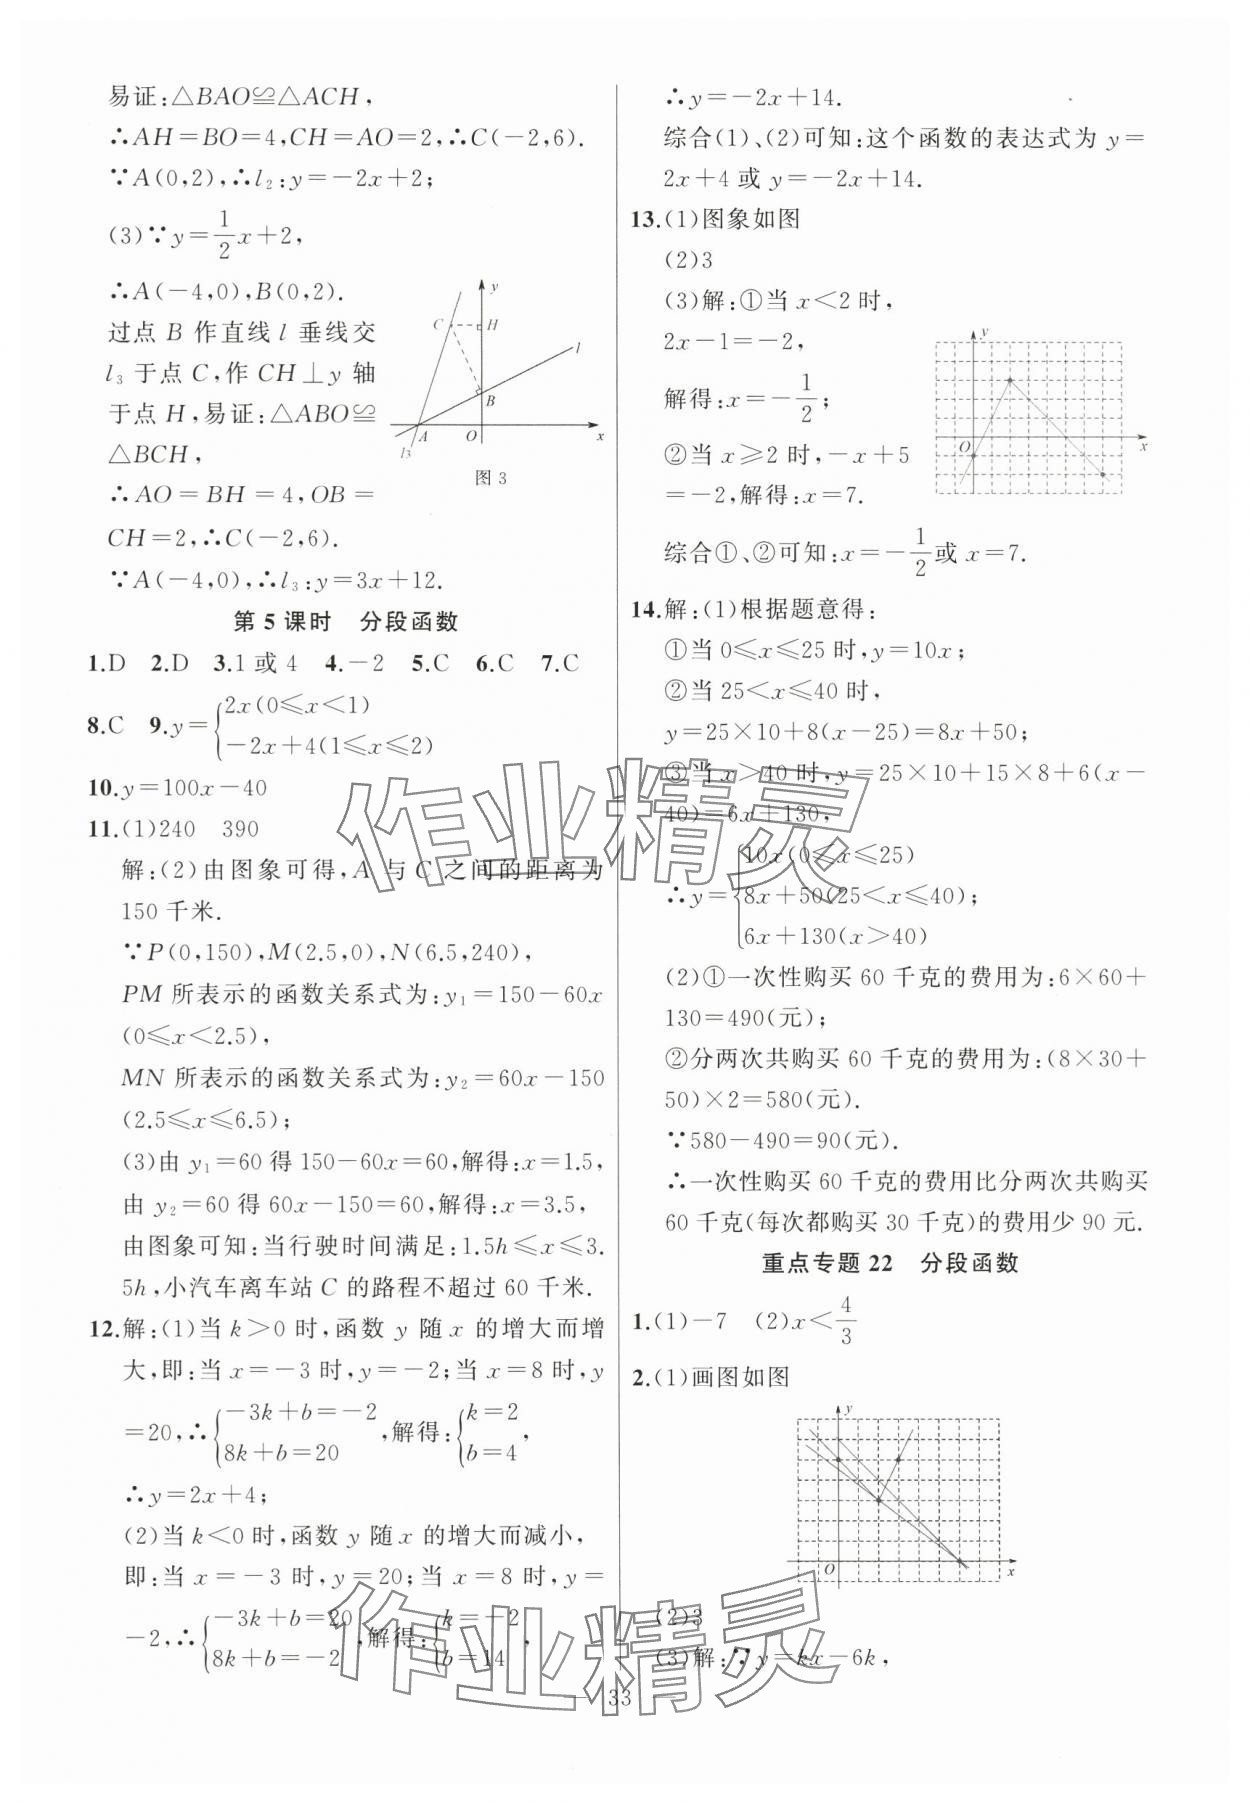 易证:△BAO≌△ACH,
∴AH=BO=4,CH=AO=2,∴C(-2,6).
∵A(0,2),∴l₂:y=-2x+2;
(3)∵y=1/2x+2,
∴A(-4,0),B(0,2).
过点 B 作直线 l 垂线交
l₃于点 C,作 CH⊥y 轴
于点 H,易证:△ABO≌
△BCH,
∴AO=BH=4,OB=
CH=2,∴C(-2,6).
∵A(-4,0),∴l₃:y=3x+12.
y
C
H
l
B
A
O
x
l₃
图 3
第 5 课时 分段函数
1.D 2.D 3.1 或 4 4.-2 5.C 6.C 7.C
8.C 9.y={2x(0≤x<1)
-2x+4(1≤x≤2)
10.y=100x-40
11.(1)240 390
解:(2)由图象可得,A 与 C 之间的距离为
150 千米.
∵P(0,150),M(2.5,0),N(6.5,240),
PM 所表示的函数关系式为:y₁=150-60x
(0≤x<2.5),
MN 所表示的函数关系式为:y₂=60x-150
(2.5≤x≤6.5);
(3)由 y₁=60 得 150-60x=60,解得:x=1.5,
由 y₂=60 得 60x-150=60,解得:x=3.5,
由图象可知:当行驶时间满足:1.5h≤x≤3.
5h,小汽车离车站 C 的路程不超过 60 千米.
12.解:(1)当 k>0 时,函数 y 随 x 的增大而增
大,即:当 x=-3 时,y=-2;当 x=8 时,y
=20,∴{-3k+b=-2
8k+b=20,解得:{k=2
b=4,
∴y=2x+4;
(2)当 k<0 时,函数 y 随 x 的增大而减小,
即:当 x=-3 时,y=20;当 x=8 时,y=
-2,∴{-3k+b=20
8k+b=-2,解得:{k=-2
b=14,
∴y=-2x+14.
综合(1)、(2)可知:这个函数的表达式为 y=
2x+4 或 y=-2x+14.
13.(1)图象如图
(2)3
(3)解:①当 x<2 时,
2x-1=-2,
解得:x=-1/2;
②当 x≥2 时,-x+5
=-2,解得:x=7.
y
O
x
综合①、②可知:x=-1/2或 x=7.
14.解:(1)根据题意得:
①当 0≤x≤25 时,y=10x;
②当 25<x≤40 时,
y=25×10+8(x-25)=8x+50;
③当 x>40 时,y=25×10+15×8+6(x-
40)=6x+130,
∴y={10x(0≤x≤25)
8x+50(25<x≤40);
6x+130(x>40)
(2)①一次性购买 60 千克的费用为:6×60+
130=490(元);
②分两次共购买 60 千克的费用为:(8×30+
50)×2=580(元).
∵580-490=90(元).
∴一次性购买 60 千克的费用比分两次共购买
60 千克(每次都购买 30 千克)的费用少 90 元.
重点专题 22 分段函数
1.(1)-7 (2)x<4/3
2.(1)画图如图
y
O
x
(2)3
(3)解:∵y=kx-6k,
33
作业精灵
作业精灵